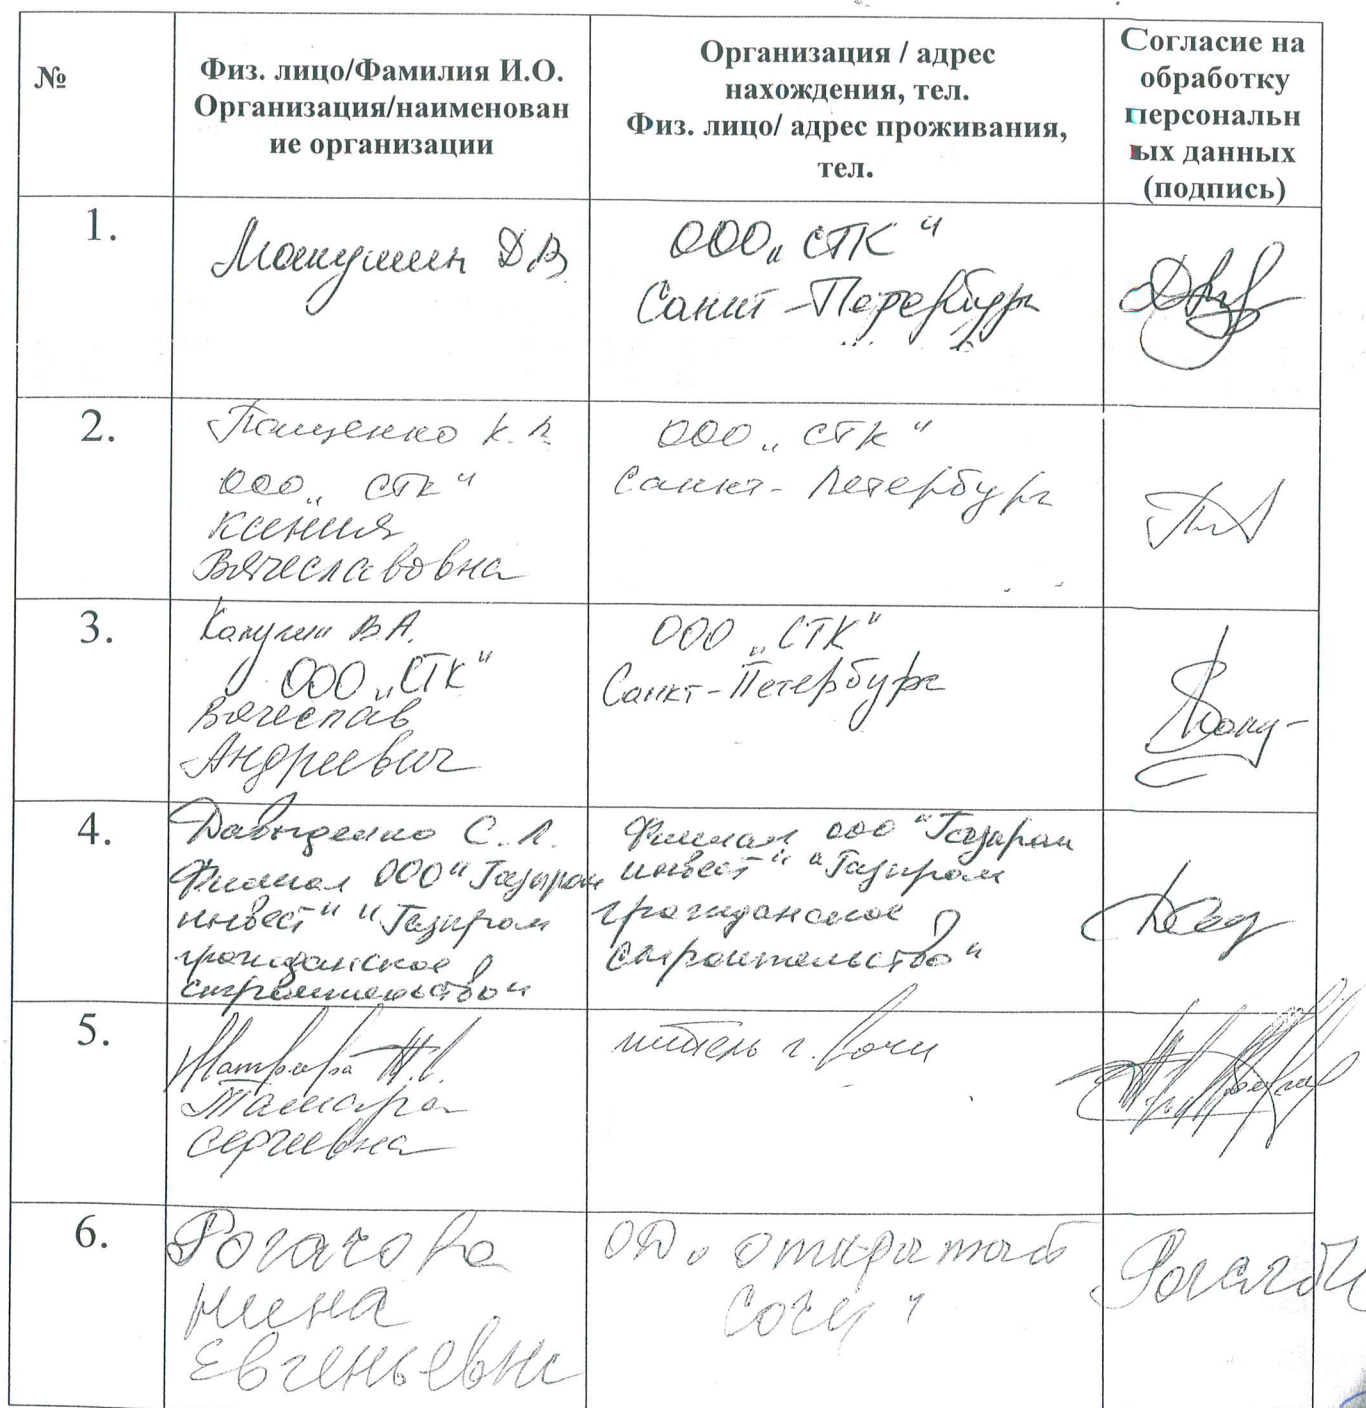 №
Физ. лицо/Фамилия И.О.
Организация/наименован
ие организации
Организация / адрес
нахождения, тел.
Физ. лицо/ адрес проживания,
тел.
Согласие на
обработку
персональн
ых данных
(подпись)
1.
Макушин Д.В
ООО „СТК“
Санкт-Петербург
2.
Пащенко К.В
ООО „СТК“
Ксения
Вячеславовна
ООО „СТК“
Санкт-Петербург
3.
В.А.
ООО „СТК“
Вячеслав
Андреевич
ООО „СТК“
Санкт-Петербург
4.
Давыденко С.Л.
Филиал ООО "Газпром
инвест" "Газпром
гражданское
строительство"
Филиал ООО "Газпром
инвест" "Газпром
гражданское
строительство"
5.
Т.С.
Тамара
Сергеевна
житель г. Сочи
6.
Рогачова
Нина
Евгеньевна
ОД „открытый
Сочи"